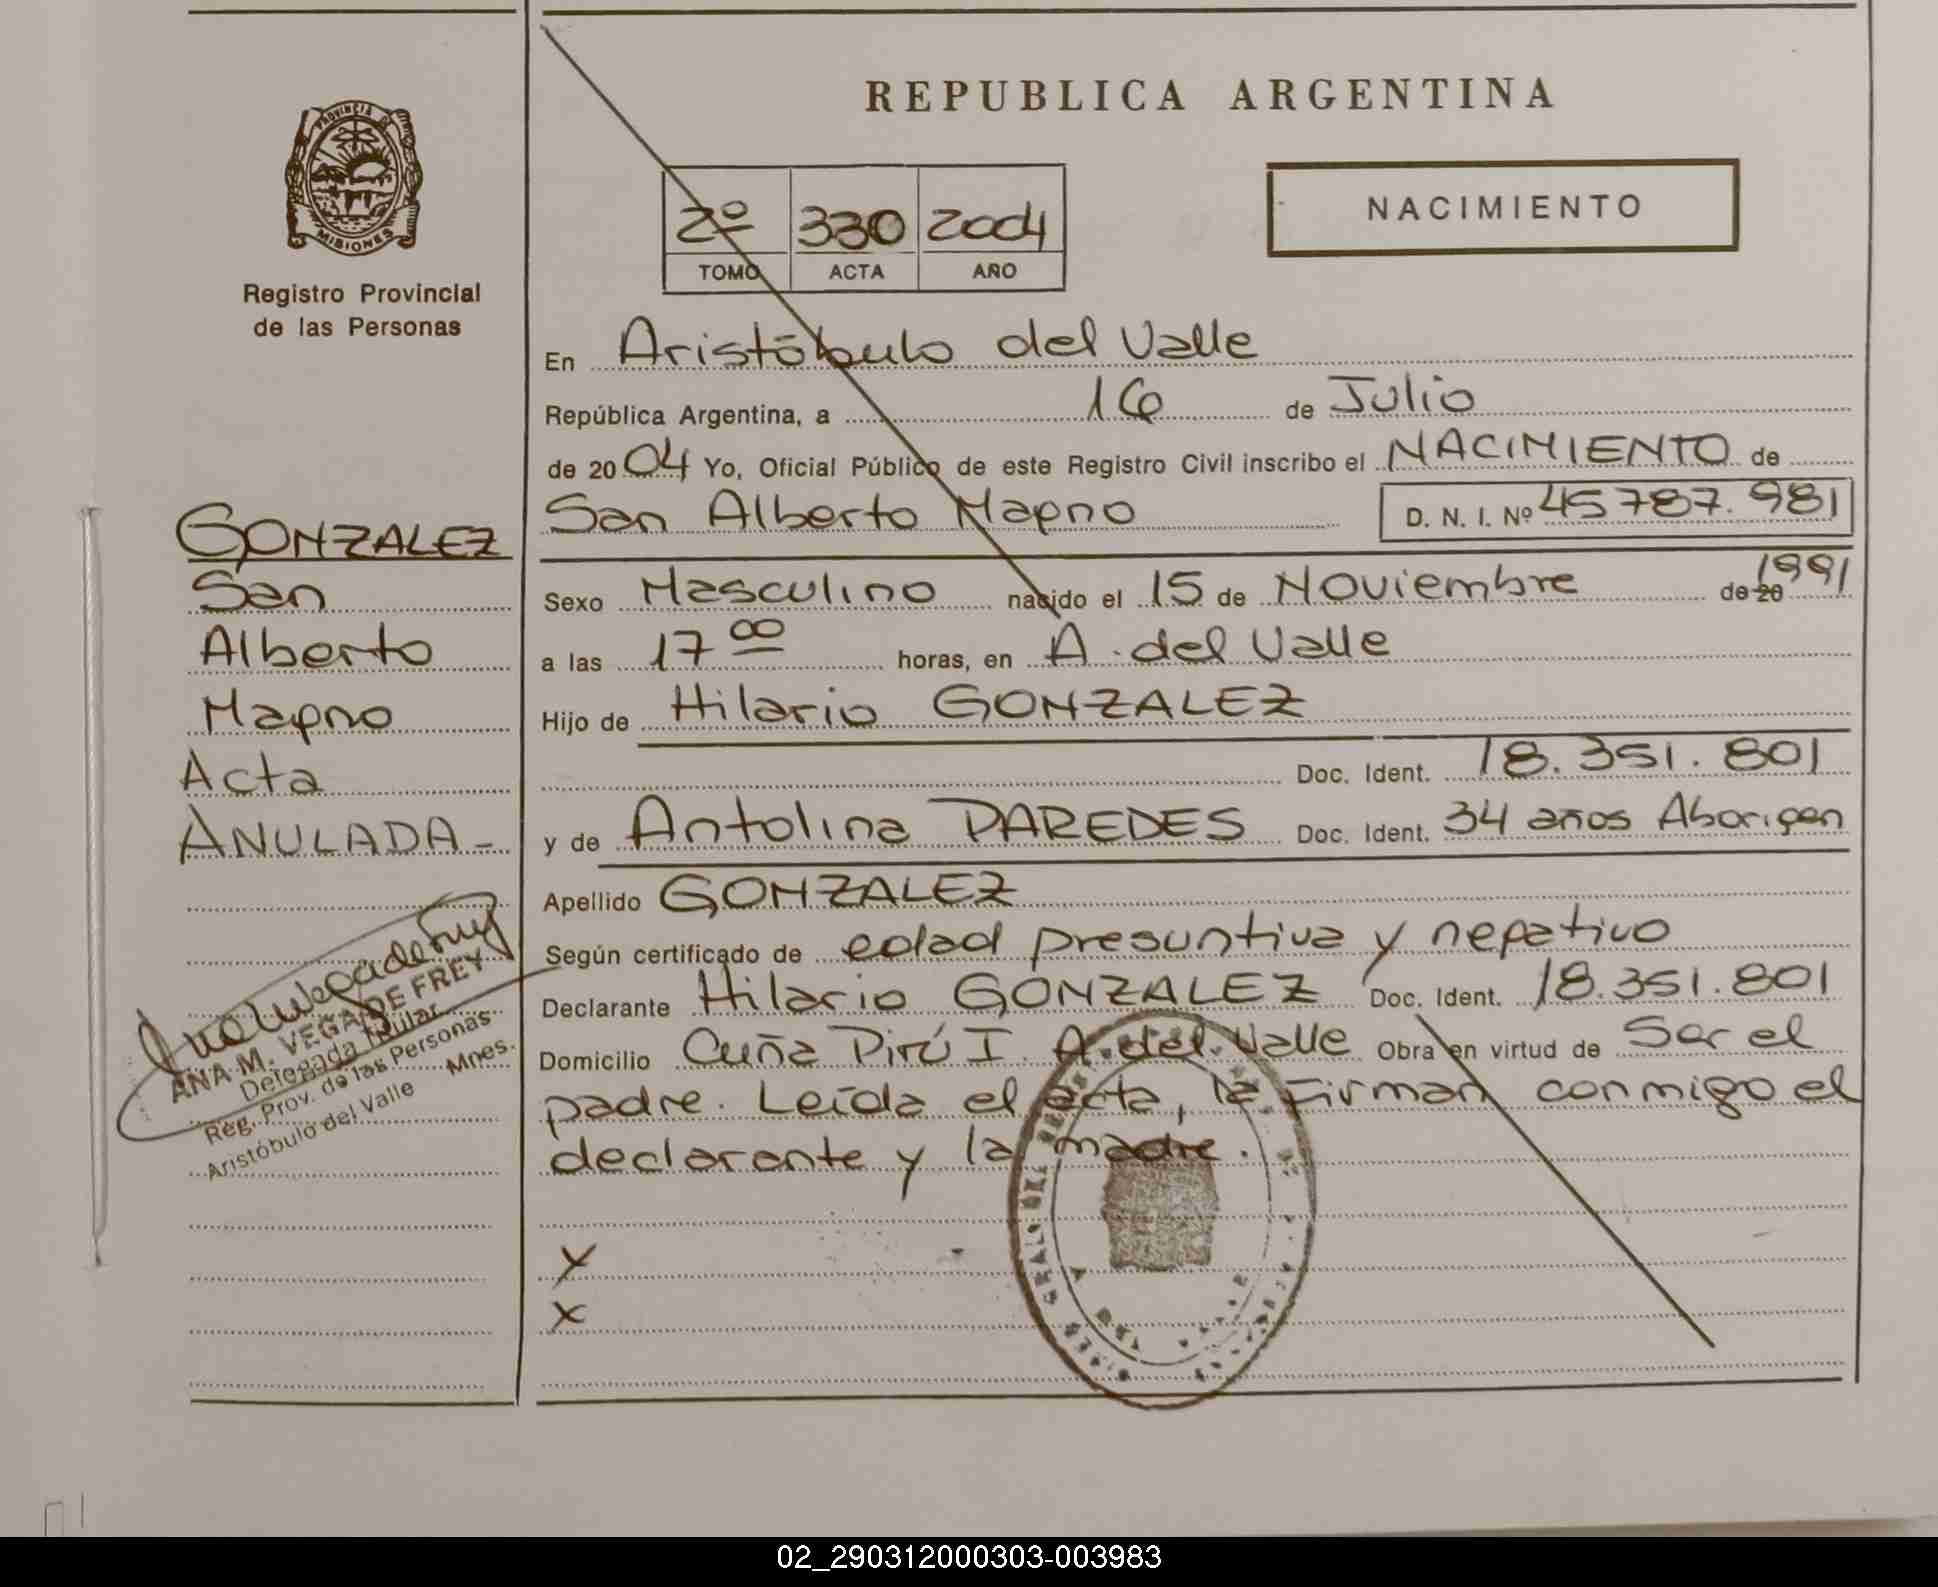 REPUBLICA ARGENTINA
PROVINCIA DE
MISIONES
Registro Provincial
de las Personas
2º 330 2004
TOMO ACTA AÑO
NACIMIENTO
GONZALEZ
San
Alberto
Magno
Acta
ANULADA-
ANA M. VEGA DE FREY
Delegada Titular
Reg. Prov. de las Personas
Aristóbulo del Valle Mnes.
En Aristóbulo del Valle
República Argentina, a 16 de Julio
de 2004 Yo, Oficial Público de este Registro Civil inscribo el NACIMIENTO de
San Alberto Magno D. N. I. Nº 45787.981
Sexo Masculino nacido el 15 de Noviembre de 20 1991
a las 17 00 horas, en A. del Valle
Hijo de Hilario GONZALEZ
Doc. Ident. 18.351.801
y de Antolina PAREDES Doc. Ident. 34 años Aborigen
Apellido GONZALEZ
Según certificado de edad presuntiva y negativo
Declarante Hilario GONZALEZ Doc. Ident. 18.351.801
Domicilio Cuña Pirú I. A. del Valle Obra en virtud de Ser el
padre. Leída el acta, la Firman conmigo el
declarante y la madre.
X
X
02_290312000303-003983